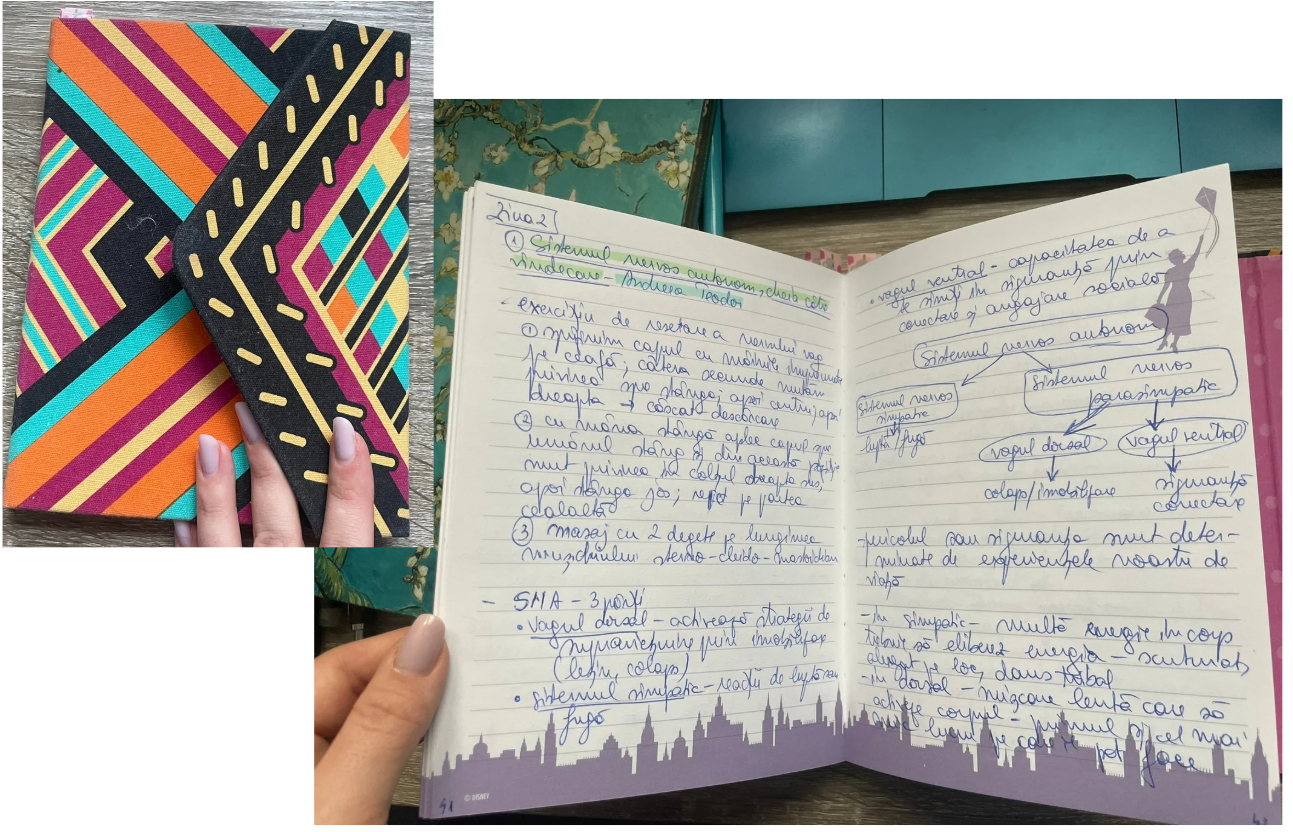 Ziua 2
① Sistemul nervos autonom, cheia către
vindecare - Andreea Teodor
- exercițiu de resetare a nervului vag
① susținem capul cu mâinile împreunate
pe ceafă; câteva secunde mutăm
privirea spre stânga, apoi centru, apoi
dreapta → căscat descărcare
② cu mâna stângă aplec capul spre
umărul stâng și din această poziție
mut privirea în colțul dreapta sus,
apoi stânga jos; repet pe partea
cealaltă
③ masaj cu 2 degete pe lungimea
mușchiului sterno-cleido-mastoidian
- SNA - 3 părți
• vagul dorsal - activează strategii de
supraviețuire prin imobilizare
(leșin, colaps)
• sistemul simpatic - reacții de luptă sau
fugă
41
© DISNEY
• vagul ventral - capacitatea de a
ne simți în siguranță prin
conectare și angajare socială
Sistemul nervos autonom
Sistemul nervos
simpatic
luptă/fugă
Sistemul nervos
parasimpatic
vagul dorsal
colaps/imobilizare
vagul ventral
siguranță
conectare
- pericolul sau siguranța sunt deter-
minate de experiențele noastre de
viață
- în simpatic - multă energie în corp
trebuie să eliberez energia - scuturat,
alergat pe loc, dans tribal
- în dorsal - mișcare lentă care să
activeze corpul - primul și cel mai
lucru pe care îl pot face